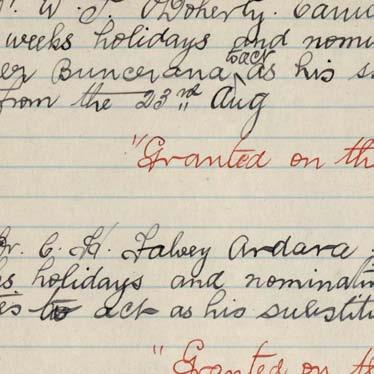 Dr. W. J. O'Doherty. Carnd
weeks holidays and nomin
er Buncrana to act as his s
from the 23rd Aug
"Granted on th
Dr. C. H. Falvey Ardara
s holidays and nominati
es to act as his substitu
"Granted on the